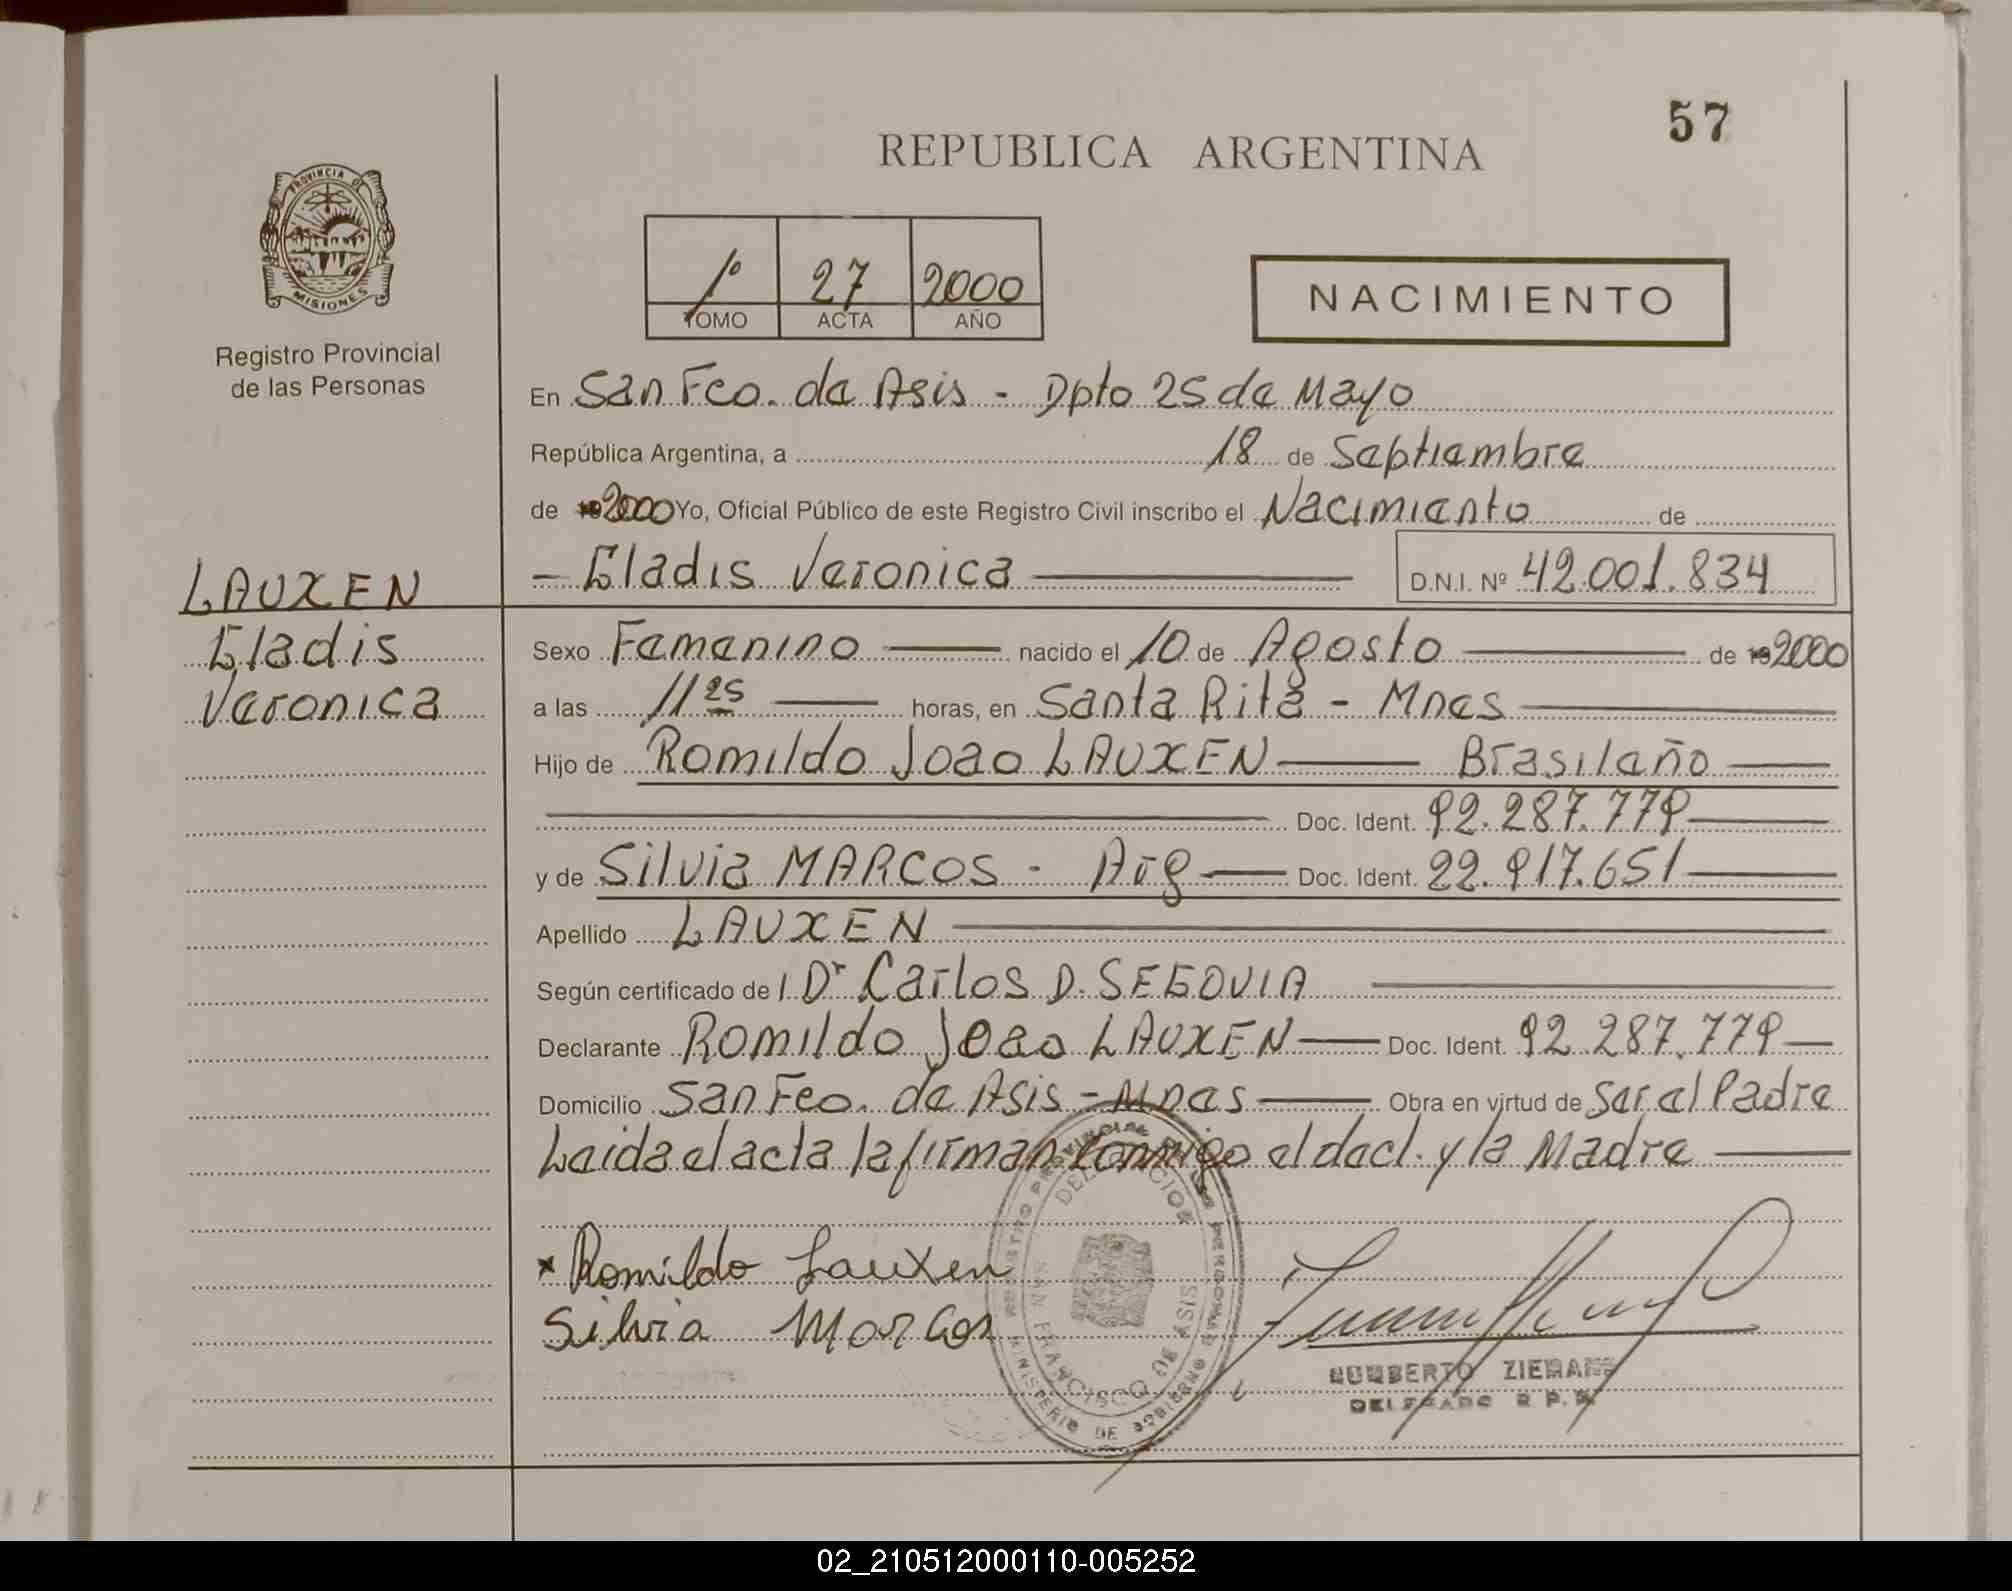 57
REPUBLICA ARGENTINA
PROVINCIA DE
MISIONES
Registro Provincial
de las Personas
1º 27 2000
TOMO ACTA AÑO
NACIMIENTO
En San Fco. de Asis - Dpto 25 de Mayo
República Argentina, a 18 de Septiembre
de 2000 Yo, Oficial Público de este Registro Civil inscribo el Nacimiento de
- Gladis Veronica D.N.I. Nº 42.001.834
LAUXEN
Gladis
Veronica
Sexo Femenino nacido el 10 de Agosto de 2000
a las 11 25 horas, en Santa Rita - Mnes
Hijo de Romildo Joao LAUXEN Brasileño
Doc. Ident. 92.287.779
y de Silvia MARCOS - Arg Doc. Ident. 22.917.651
Apellido LAUXEN
Según certificado de l Dr Carlos D. SEGOVIA
Declarante Romildo Joao LAUXEN Doc. Ident. 92.287.779
Domicilio San Fco. de Asis - Mnes Obra en virtud de Ser el Padre
Leida el acta la firman conmigo el decl. y la Madre
x Romildo Lauxen
Silvia Marcos
REGISTRO PROVINCIAL DE LAS PERSONAS
MINISTERIO DE GOBIERNO
SAN FRANCISCO DE ASIS
HUMBERTO
DELEGADO R. P. P.
02_210512000110-005252